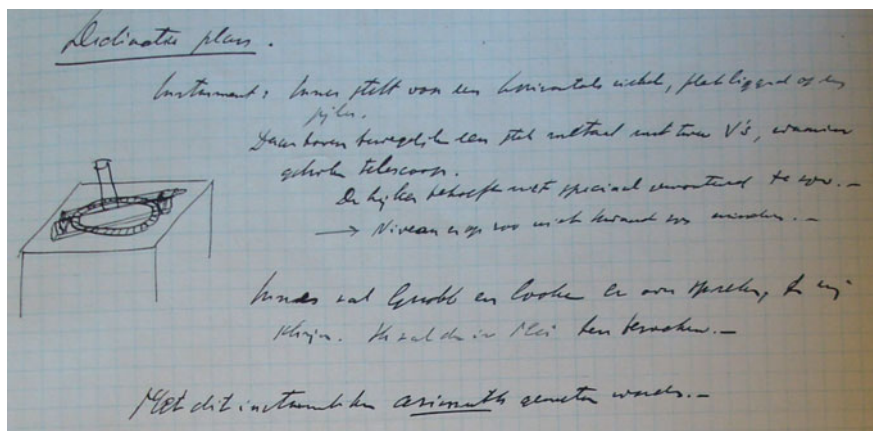 Declinatie plan.
Instrument: Innes stelt voor een horizontale cirkel, plat liggend op een
pijler.
Daar boven bewegelijk een stuk metaal met twee V's, waarin
gebroken telescoop.
De kijker behoeft niet speciaal te zijn.—
→ Niveau erop zoo
Innes zal Grubb en Cooke er over spreken, en mij
Ik zal de in Mei ben bezoeken.—
Met dit instrument kan azimuth gemeten worden.—